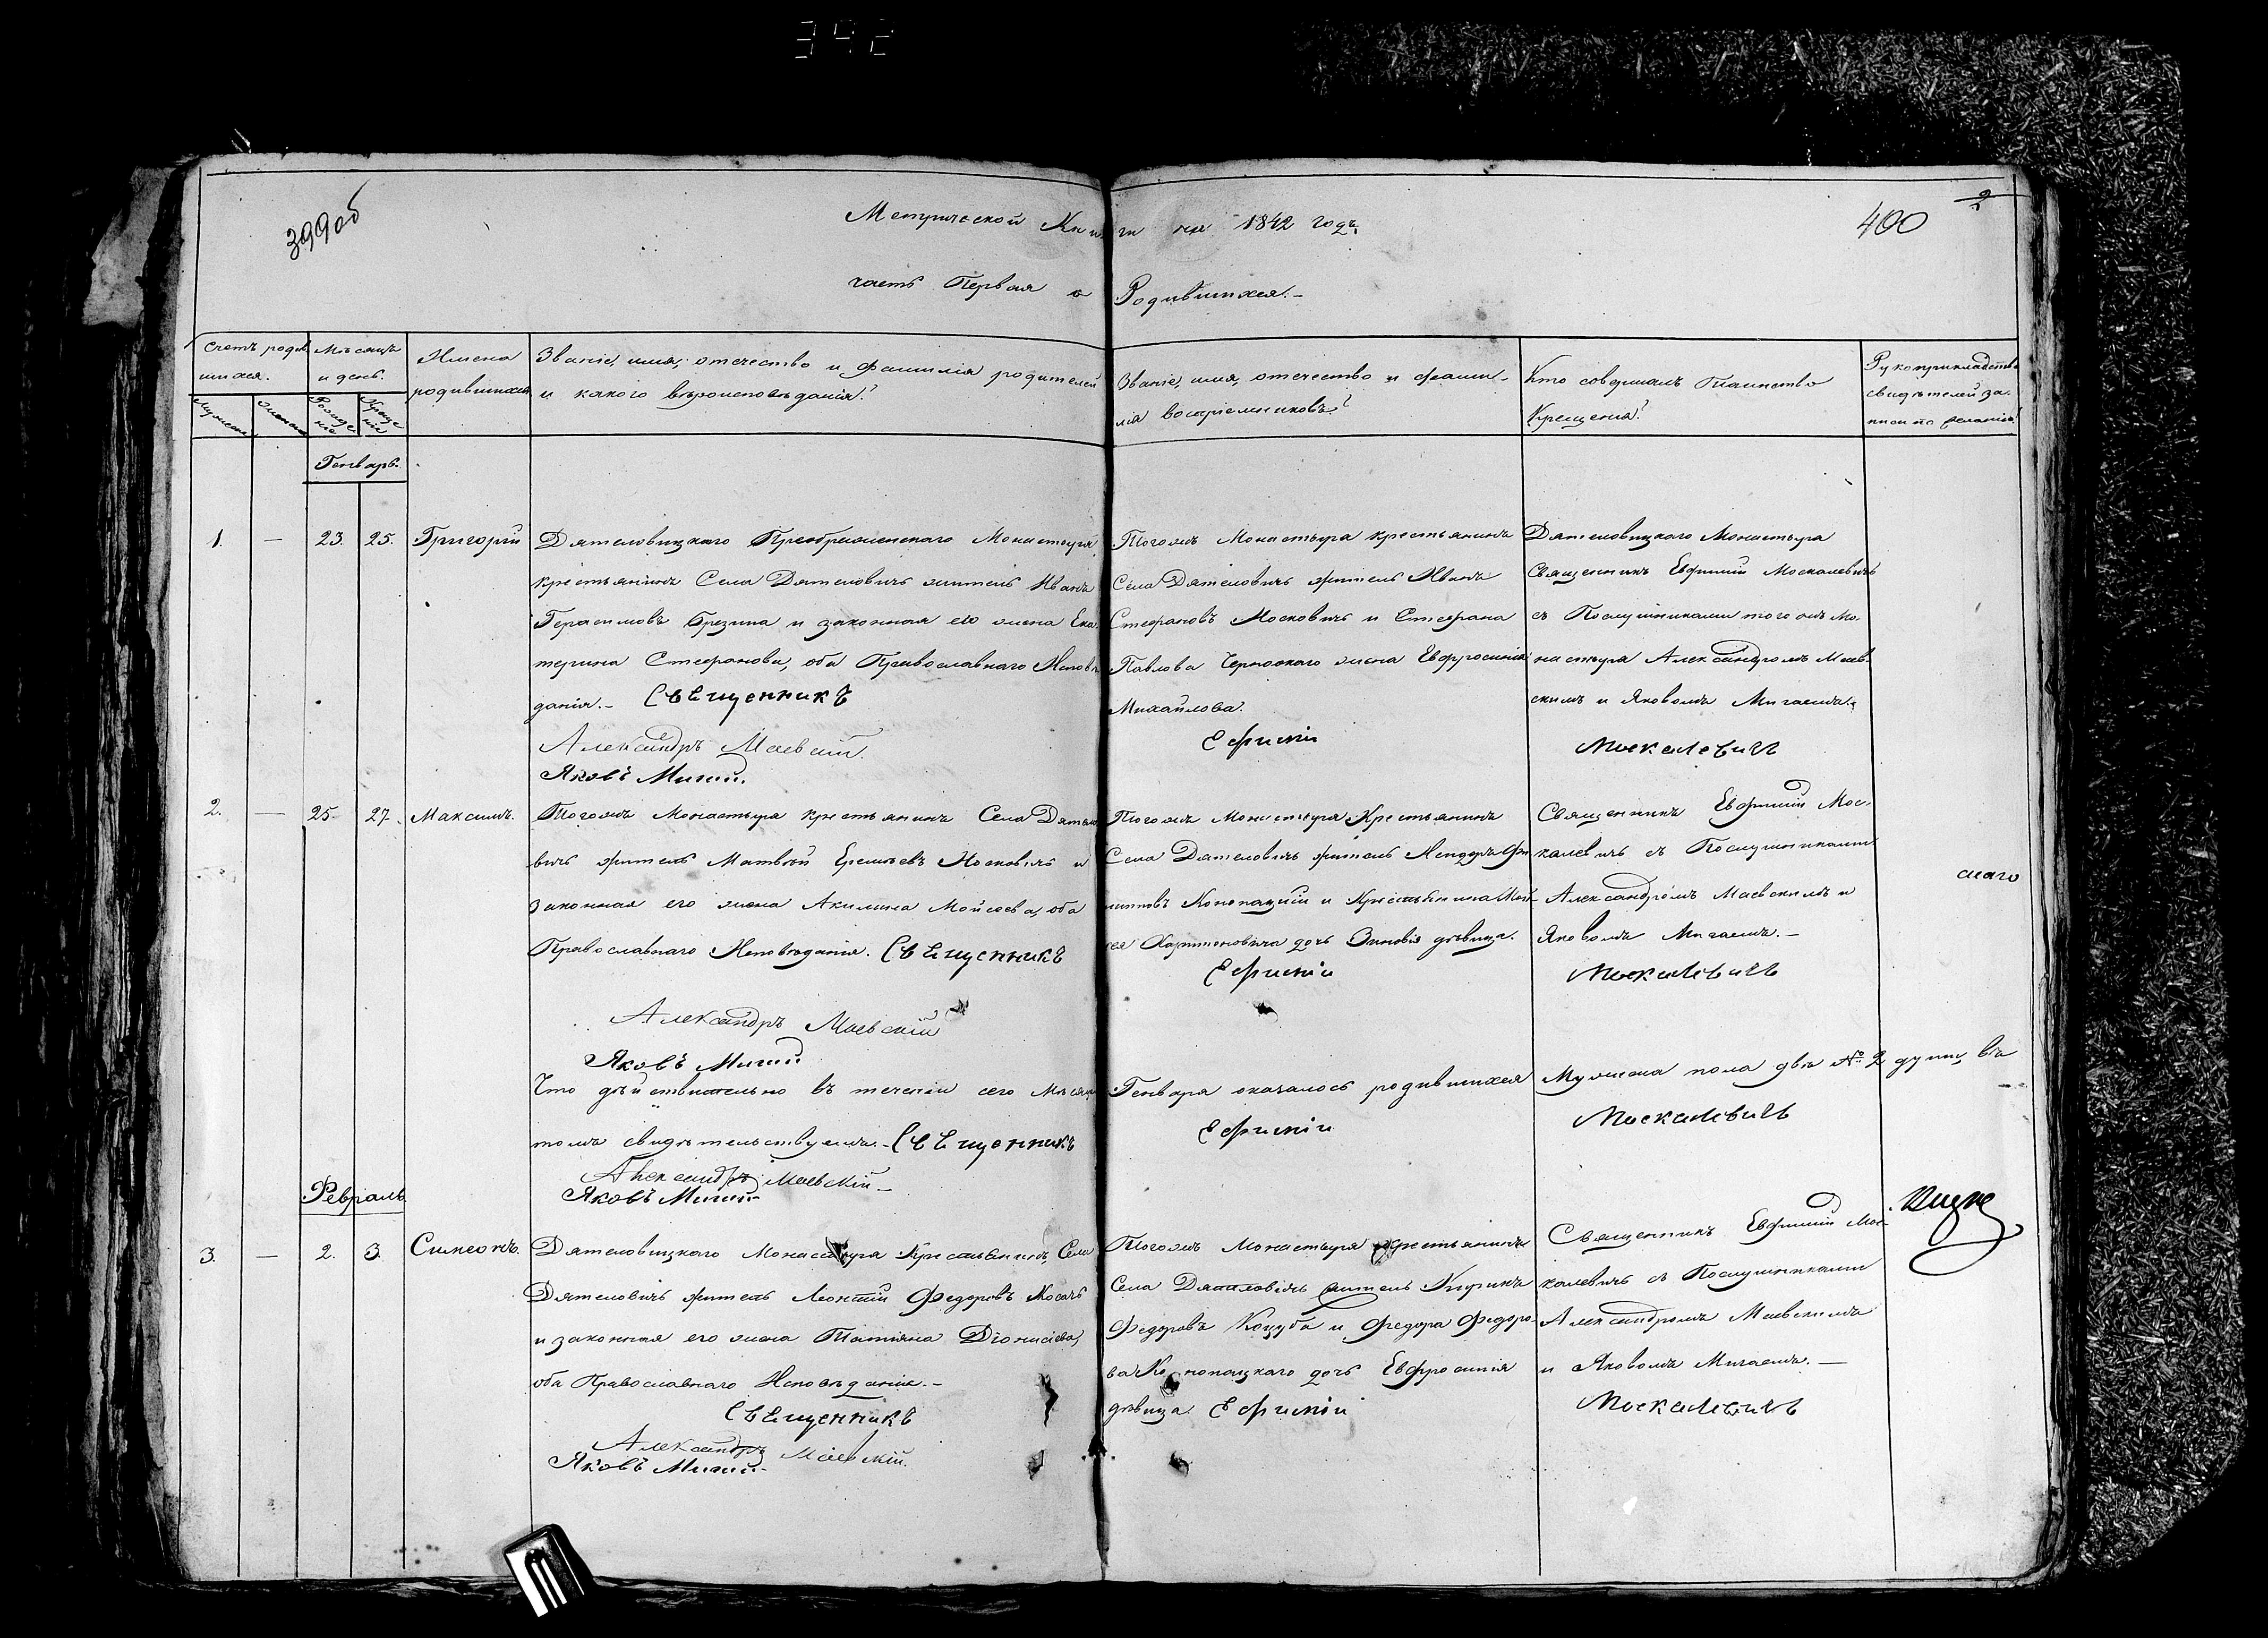 392
399об
Метрической Книги на 1842 годъ,
400
2
часть Первая о Родившихся.-
Счетъ роди
вшихся.
Мѣсяцъ
и день.
Имена
родившихся
Званіе, имя, отечество и фамилія родителей
и какого вѣроисповѣданія?
Званіе, имя, отечество и фами-
лія воспріемниковъ?
Кто совершалъ Таинство
Крещенія?
Рукоприкладство
свидѣтелей за-
писи по желанію?
Мужеска
Женска
Рожде
нія
Креще
нія
Генварь.
1. — 23. 25. Григорій
Дятеловицкаго Преображенскаго Монастыря,
крестьянинъ Села Дятеловичъ житель Иванъ
Герасимовъ Брезина и законная его жена Ека-
терина Стефанова, оба Православнаго Исповѣ
данія.- Свещенникъ
Александръ Маевскій.
Яковъ Мигай.
Тогожъ Монастыря крестьянинъ
Села Дятеловичъ житель Иванъ
Стефановъ Московичъ и Стефана
Павлова Чернокого жена Евфросинія
Михайлова.
Ефимій
Дятеловицкаго Монастыря
Священникъ Евфимій Москалевичъ
съ Послушниками того жъ Мо-
настыря Александромъ Маев-
скимъ и Яковомъ Мигаемъ.
Москалевичъ
2. — 25. 27. Максимъ.
Тогожъ Монастыря крестьянинъ Села Дятело
вичъ житель Матвѣй Еремѣевъ Московичъ и
законная его жена Акилина Мойсеева, оба
Православнаго Исповѣданія. Свещенникъ
Александръ Маевскій
Яковъ Мигай
Тогожъ Монастыря Крестьянинъ
Села Дятеловичъ житель
Конопацкій и Крестьянина
Харитоновича дочь Зиновія дѣвица.
Ефимій
Священникъ Евфимій Мос-
калевичъ съ Послушниками
Александромъ Маевскимъ и
Яковомъ Мигаемъ.—
Москалевичъ
Что дѣйствительно въ теченіи сего Мѣсяца Генваря оказалось родившихся Мужеска пола два № 2 души, въ
томъ свидѣтельствуемъ.- Свещенникъ Ефимій Москалевичъ
Александръ Маевскій-
Яковъ Мигай
Февраль
3. — 2. 3. Симеонъ.
Дятеловицкаго Монастыря Крестьянинъ, Села
Дятеловичъ житель Леонтій Федоровъ Косачъ
и законная его жена Татіяна Діонисіева,
оба Православнаго Исповѣданія.-
Свещенникъ
Александръ Маевскій.
Яковъ Мигай-
Тогожъ Монастыря крестьянинъ
Села Дятеловичъ житель Кирикъ
Федоровъ Коцуба и Федора Федоро-
ва Конопацкаго дочь Евфросинія
дѣвица. Ефимій
Священникъ Евфимій Мос-
калевичъ съ Послушниками
Александромъ Маевскимъ
и Яковомъ Мигаемъ.—
Москалевичъ